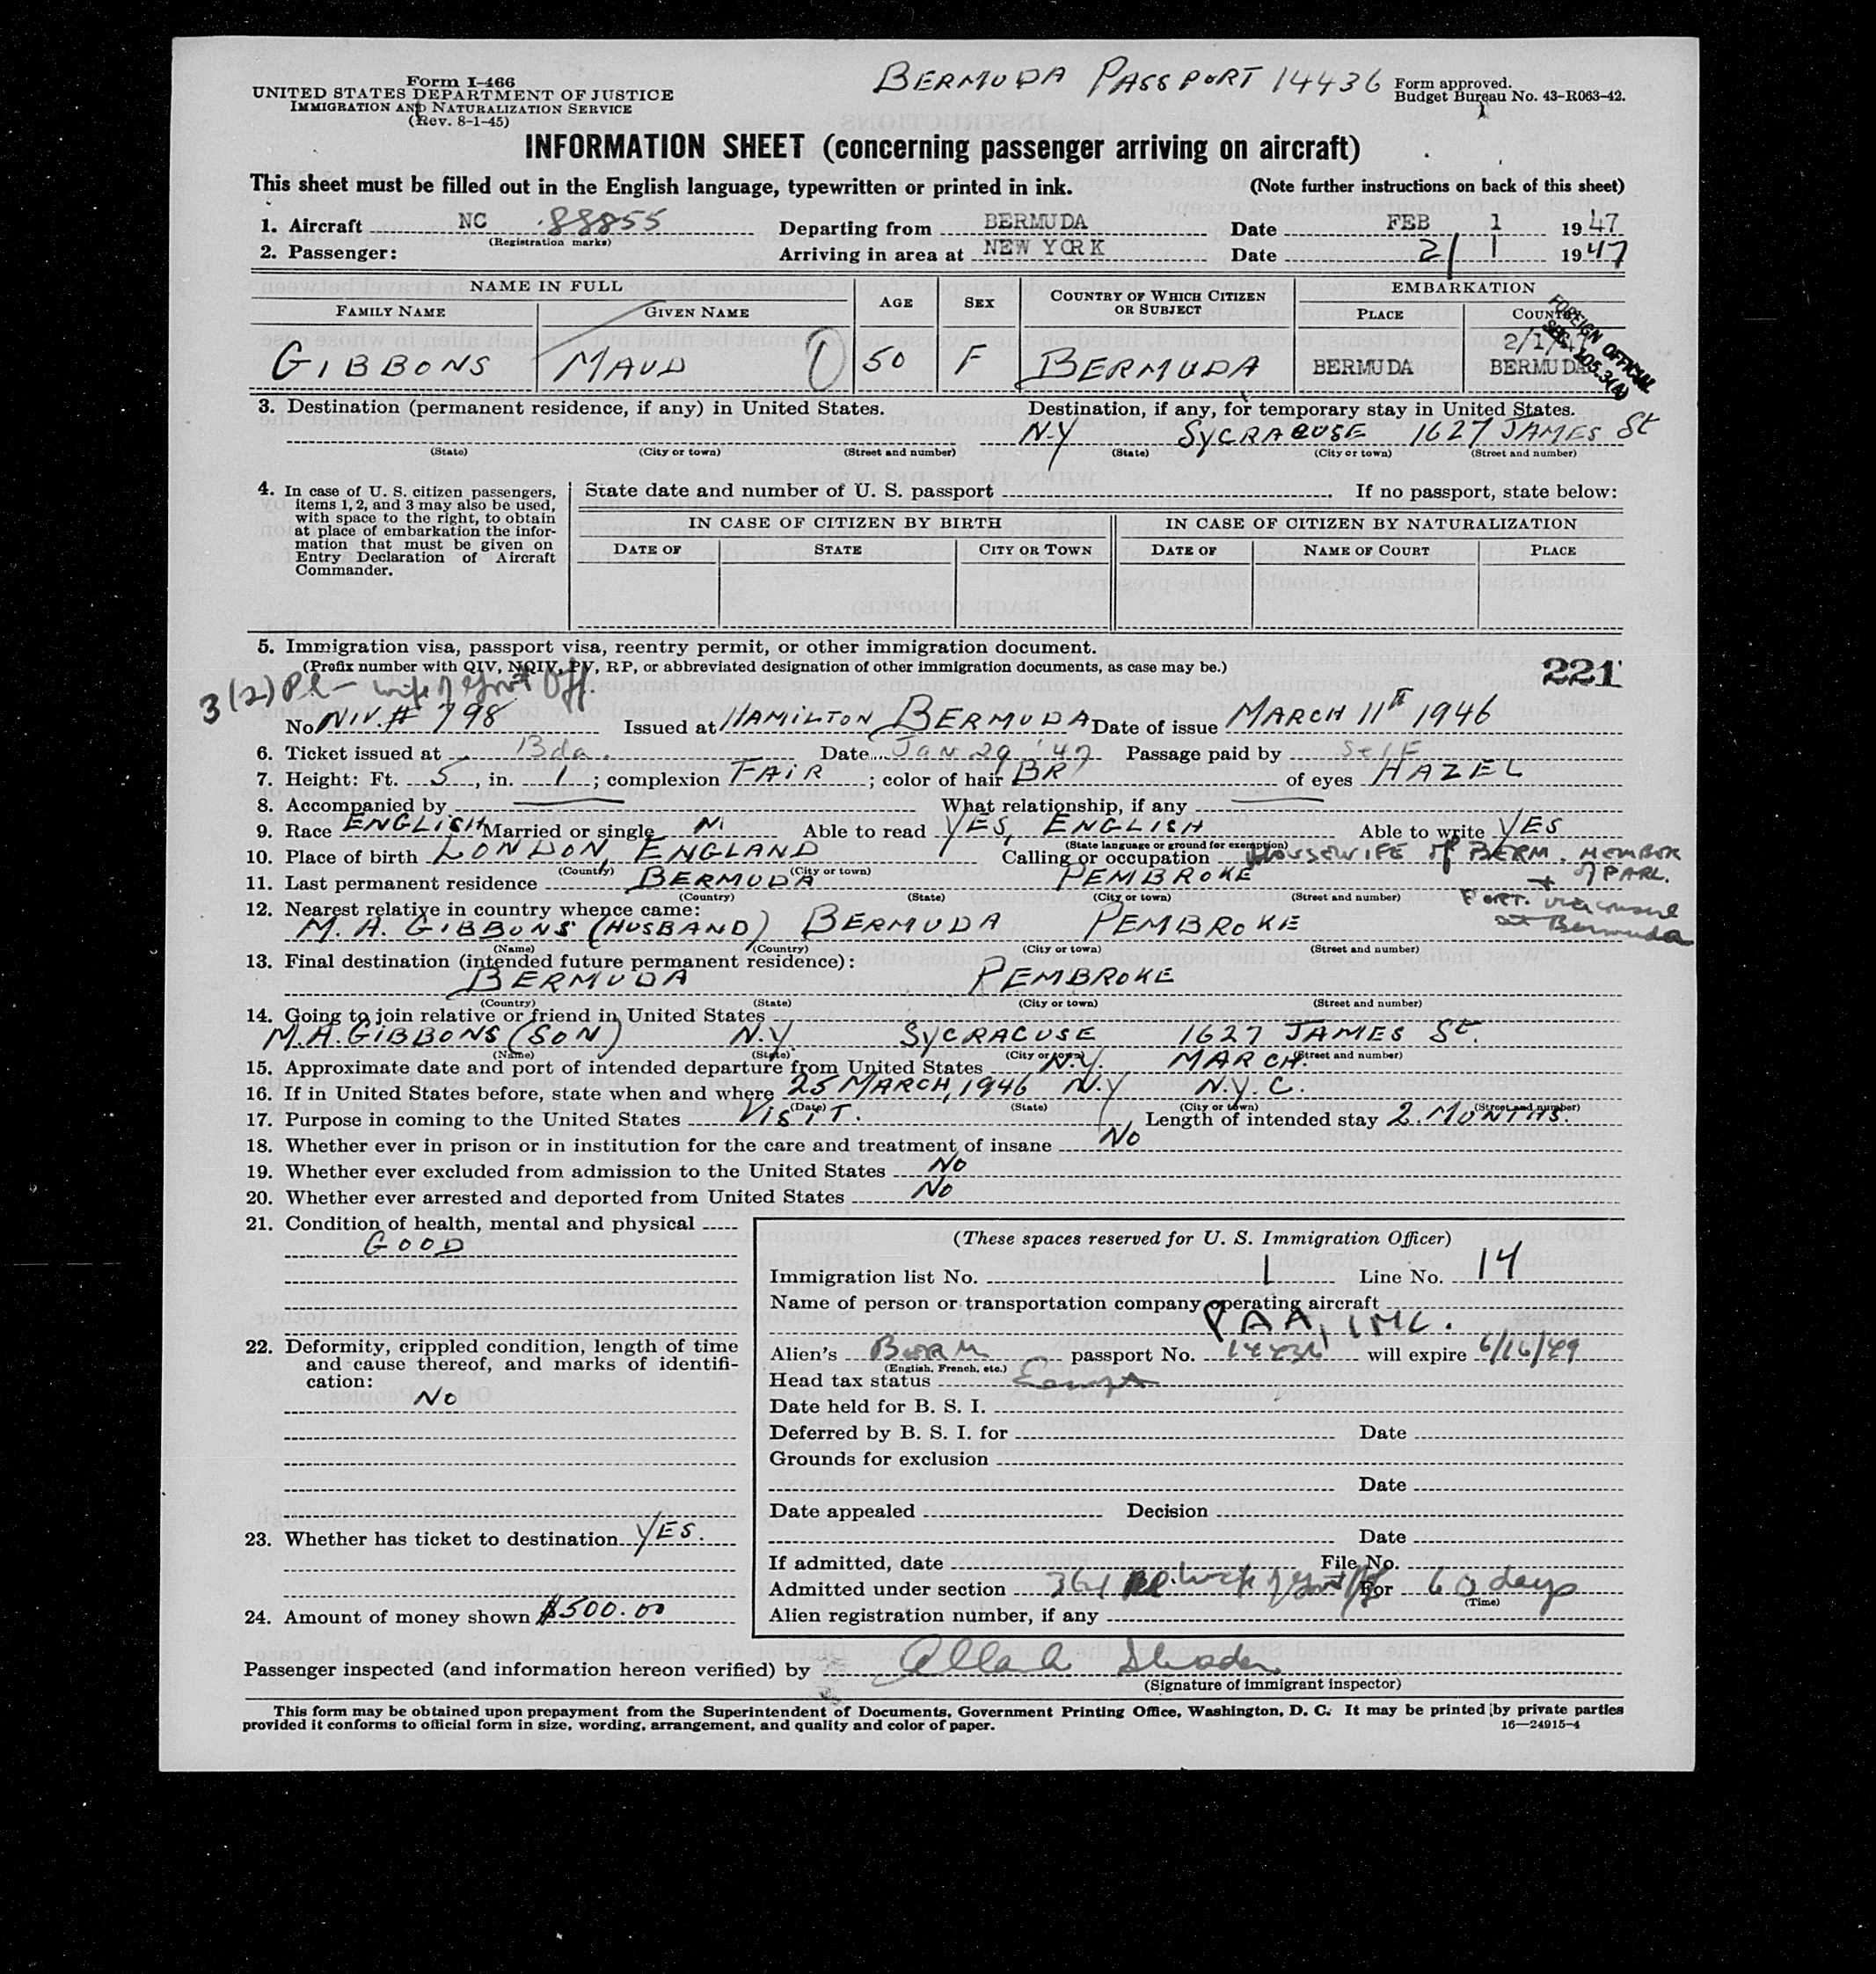 Form I-466
UNITED STATES DEPARTMENT OF JUSTICE
IMMIGRATION AND NATURALIZATION SERVICE
(Rev. 8-1-45)
BERMUDA PASSPORT 14436
Form approved.
Budget Bureau No. 43-R063-42.
INFORMATION SHEET (concerning passenger arriving on aircraft)
This sheet must be filled out in the English language, typewritten or printed in ink. (Note further instructions on back of this sheet)
1. Aircraft NC 88855 Departing from BERMUDA Date FEB 1 1947
(Registration marks)
2. Passenger: Arriving in area at NEW YORK Date 2/1 1947
NAME IN FULL AGE SEX COUNTRY OF WHICH CITIZEN OR SUBJECT EMBARKATION
FAMILY NAME GIVEN NAME PLACE COUNTRY
FOREIGN OFFICIAL
SEC. 105.3(A)
2/1/47
GIBBONS MAUD 1 50 F BERMUDA BERMUDA BERMUDA
3. Destination (permanent residence, if any) in United States. Destination, if any, for temporary stay in United States.
N.Y SYCRACUSE 1627 JAMES St
(State) (City or town) (Street and number) (State) (City or town) (Street and number)
4. In case of U. S. citizen passengers, items 1, 2, and 3 may also be used, with space to the right, to obtain at place of embarkation the information that must be given on Entry Declaration of Aircraft Commander.
State date and number of U. S. passport . If no passport, state below:
IN CASE OF CITIZEN BY BIRTH IN CASE OF CITIZEN BY NATURALIZATION
DATE OF STATE CITY OR TOWN DATE OF NAME OF COURT PLACE
5. Immigration visa, passport visa, reentry permit, or other immigration document.
(Prefix number with QIV, NQIV, PV, RP, or abbreviated designation of other immigration documents, as case may be.)
221
3(2) Pl - wife of Govt Off.
No NIV. # 798 Issued at HAMILTON BERMUDA Date of issue MARCH 11th 1946
6. Ticket issued at Bda. Date Jan 29 '47 Passage paid by Self
7. Height: Ft. 5, in. 1; complexion FAIR; color of hair BR of eyes HAZEL
8. Accompanied by What relationship, if any
9. Race ENGLISH Married or single M. Able to read YES, ENGLISH Able to write YES
(State language or ground for exemption)
10. Place of birth LONDON, ENGLAND Calling or occupation HOUSEWIFE of BERM. MEMBER
(Country) (City or town)
of PARL.
11. Last permanent residence BERMUDA PEMBROKE
(Country) (State) (City or town) (Street and number)
+ Port. vice consul
at Bermuda
12. Nearest relative in country whence came:
M. A. GIBBONS (HUSBAND) BERMUDA PEMBROKE
(Name) (Country) (City or town) (Street and number)
13. Final destination (intended future permanent residence):
BERMUDA PEMBROKE
(Country) (State) (City or town) (Street and number)
14. Going to join relative or friend in United States
M.A. GIBBONS (SON) N.Y. SYCRACUSE 1627 JAMES St.
(Name) (State) (City or town) (Street and number)
15. Approximate date and port of intended departure from United States N.Y. MARCH.
16. If in United States before, state when and where 25 MARCH, 1946 N.Y N.Y.C.
(Date) (State) (City or town) (Street and number)
17. Purpose in coming to the United States VISIT. Length of intended stay 2. MONTHS.
18. Whether ever in prison or in institution for the care and treatment of insane No
19. Whether ever excluded from admission to the United States No
20. Whether ever arrested and deported from United States No
21. Condition of health, mental and physical
GOOD
22. Deformity, crippled condition, length of time and cause thereof, and marks of identification:
No
23. Whether has ticket to destination YES.
24. Amount of money shown $500.00
(These spaces reserved for U. S. Immigration Officer)
Immigration list No. 1 Line No. 14
Name of person or transportation company operating aircraft
PAA, INC.
Alien's Berm passport No. 14436 will expire 6/16/49
(English, French, etc.)
Head tax status Exempt
Date held for B. S. I.
Deferred by B. S. I. for Date
Grounds for exclusion
Date
Date appealed Decision
Date
If admitted, date File No.
Admitted under section wife of Govt Off For 60 days
(Time)
Alien registration number, if any
Passenger inspected (and information hereon verified) by
(Signature of immigrant inspector)
This form may be obtained upon prepayment from the Superintendent of Documents, Government Printing Office, Washington, D. C. It may be printed by private parties
provided it conforms to official form in size, wording, arrangement, and quality and color of paper. 16—24915-4